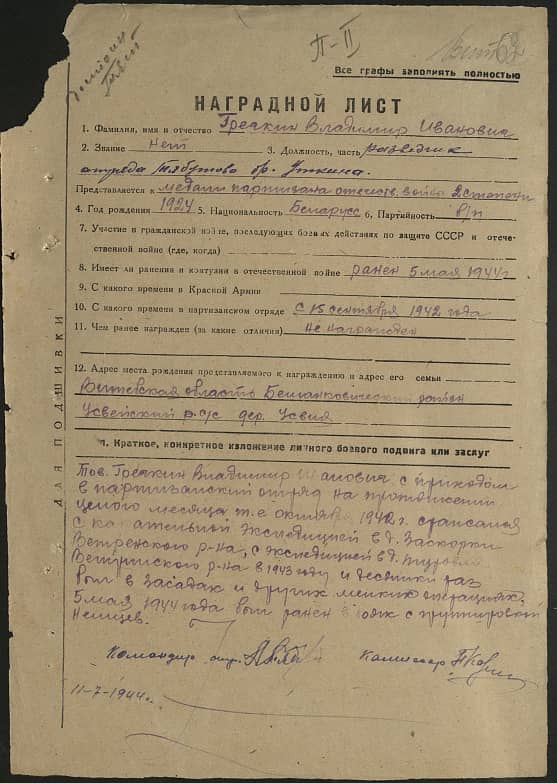 П-II
Все графы заполнять полностью
НАГРАДНОЙ ЛИСТ
1. Фамилия, имя и отчество Гресякин Владимир Иванович
2. Звание нет 3. Должность, часть разведчик
отряда Тябутово бр. Уткина.
Представляется к медали партизана отечеств. войны 2 степени
4. Год рождения 1924 5. Национальность Беларусс 6. Партийность б/п
7. Участие в гражданской войне, последующих боевых действиях по защите СССР и отече-
ственной войне (где, когда)
8. Имеет ли ранения и контузии в отечественной войне ранен 5 мая 1944 г
9. С какого времени в Красной Армии
10. С какого времени в партизанском отряде с 15 сентября 1942 года
11. Чем ранее награжден (за какие отличия) Не награжден
12. Адрес места рождения представляемого к награждению и адрес его семьи
Витебская область Бешанковический район
Усвейский р-с/с дер. Усвия
ДЛЯ ПОДШИВКИ
1. Краткое, конкретное изложение личного боевого подвига или заслуг
Тов. Гресякин Владимир Иванович с приходом
в партизанский отряд на протяжении
целого месяца т.е. октября 1942 г. сражался
с карательной экспедицией в д. Заскорки
Ветренского р-на, с экспедицией в д.
Ветринского р-на в 1943 году и десятки раз
был в засадах и других мелких операциях,
5 мая 1944 года был ранен в боях с группировкой
Немцев.
Командир отр. Комиссар
11-7-1944 г.